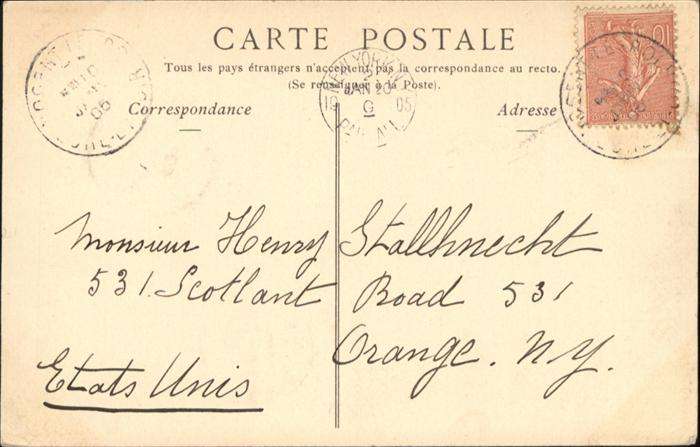 CARTE POSTALE
Tous les pays étrangers n'acceptent pas la correspondance au recto.
(Se renseigner à la Poste).
Correspondance
Adresse
NEW YORK
JAN 20
9
19 05
PAID ALL
10
Monsieur Henry Stallknecht
531. Scotlant Road 531
Orange. N.Y.
Etats Unis